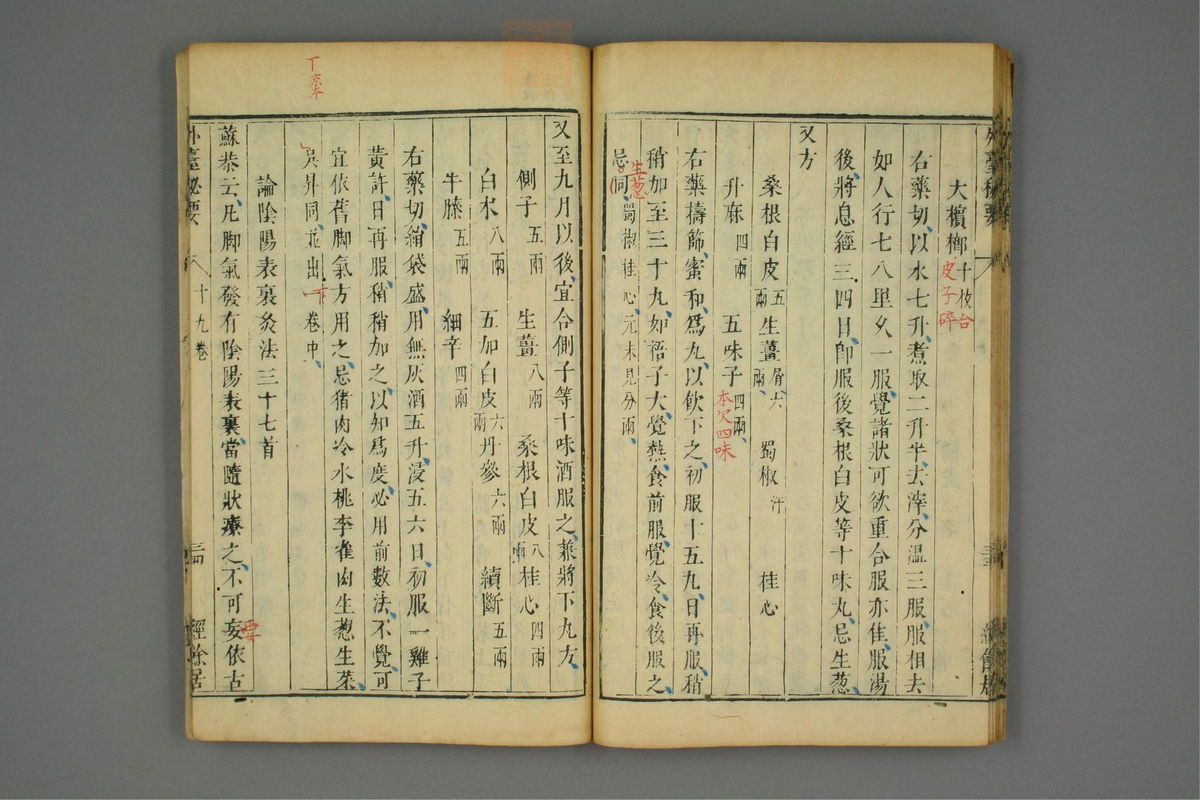 大檳榔十枚合皮子碎
右藥切以水七升煮取二升半去滓分溫三服服相去
如人行七八里久一服覺諸狀可欲重合服亦佳服湯
後將息經三四日即服後桑根白皮等十味丸忌生葱
又方
桑根白皮五兩 生薑屑六兩 蜀椒汗 桂心
升麻四兩 五味子四兩 本欠四味
右藥擣篩蜜和爲丸以飲下之初服十五丸日再服稍
稍加至三十丸如梧子大覺熱食前服覺冷食後服之
忌同蜀椒桂心元未見分兩
生葱
又至九月以後宜合側子等十味酒服之兼將下丸方
側子五兩 生薑八兩 桑根白皮八兩 桂心四兩
白朮八兩 五加白皮六兩 丹參六兩 續斷五兩
牛膝五兩 細辛四兩
右藥切絹袋盛用無灰酒五升浸五六日初服一雞子
黃許日再服稍稍加之以知爲度必用前數法不覺可
宜依舊脚氣方用之忌猪肉冷水桃李雀肉生葱生菜
吳昇同並出下卷中
丁京本
論陰陽表裏灸法三十七首
蘇恭云凡脚氣發有陰陽表裏當隨狀療之不可妄依古
要
外臺秘要 十九卷 三四 經餘居